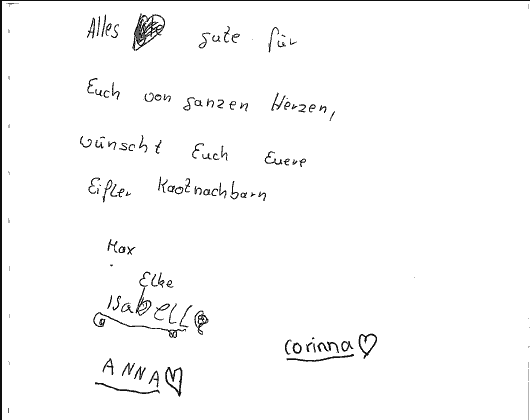 Alles gute für
Euch von ganzen Herzen,
wünscht Euch Euere
Eifler Kaotnachbarn
Max
Elke
IsabELLe
corinna♡
ANNA♡